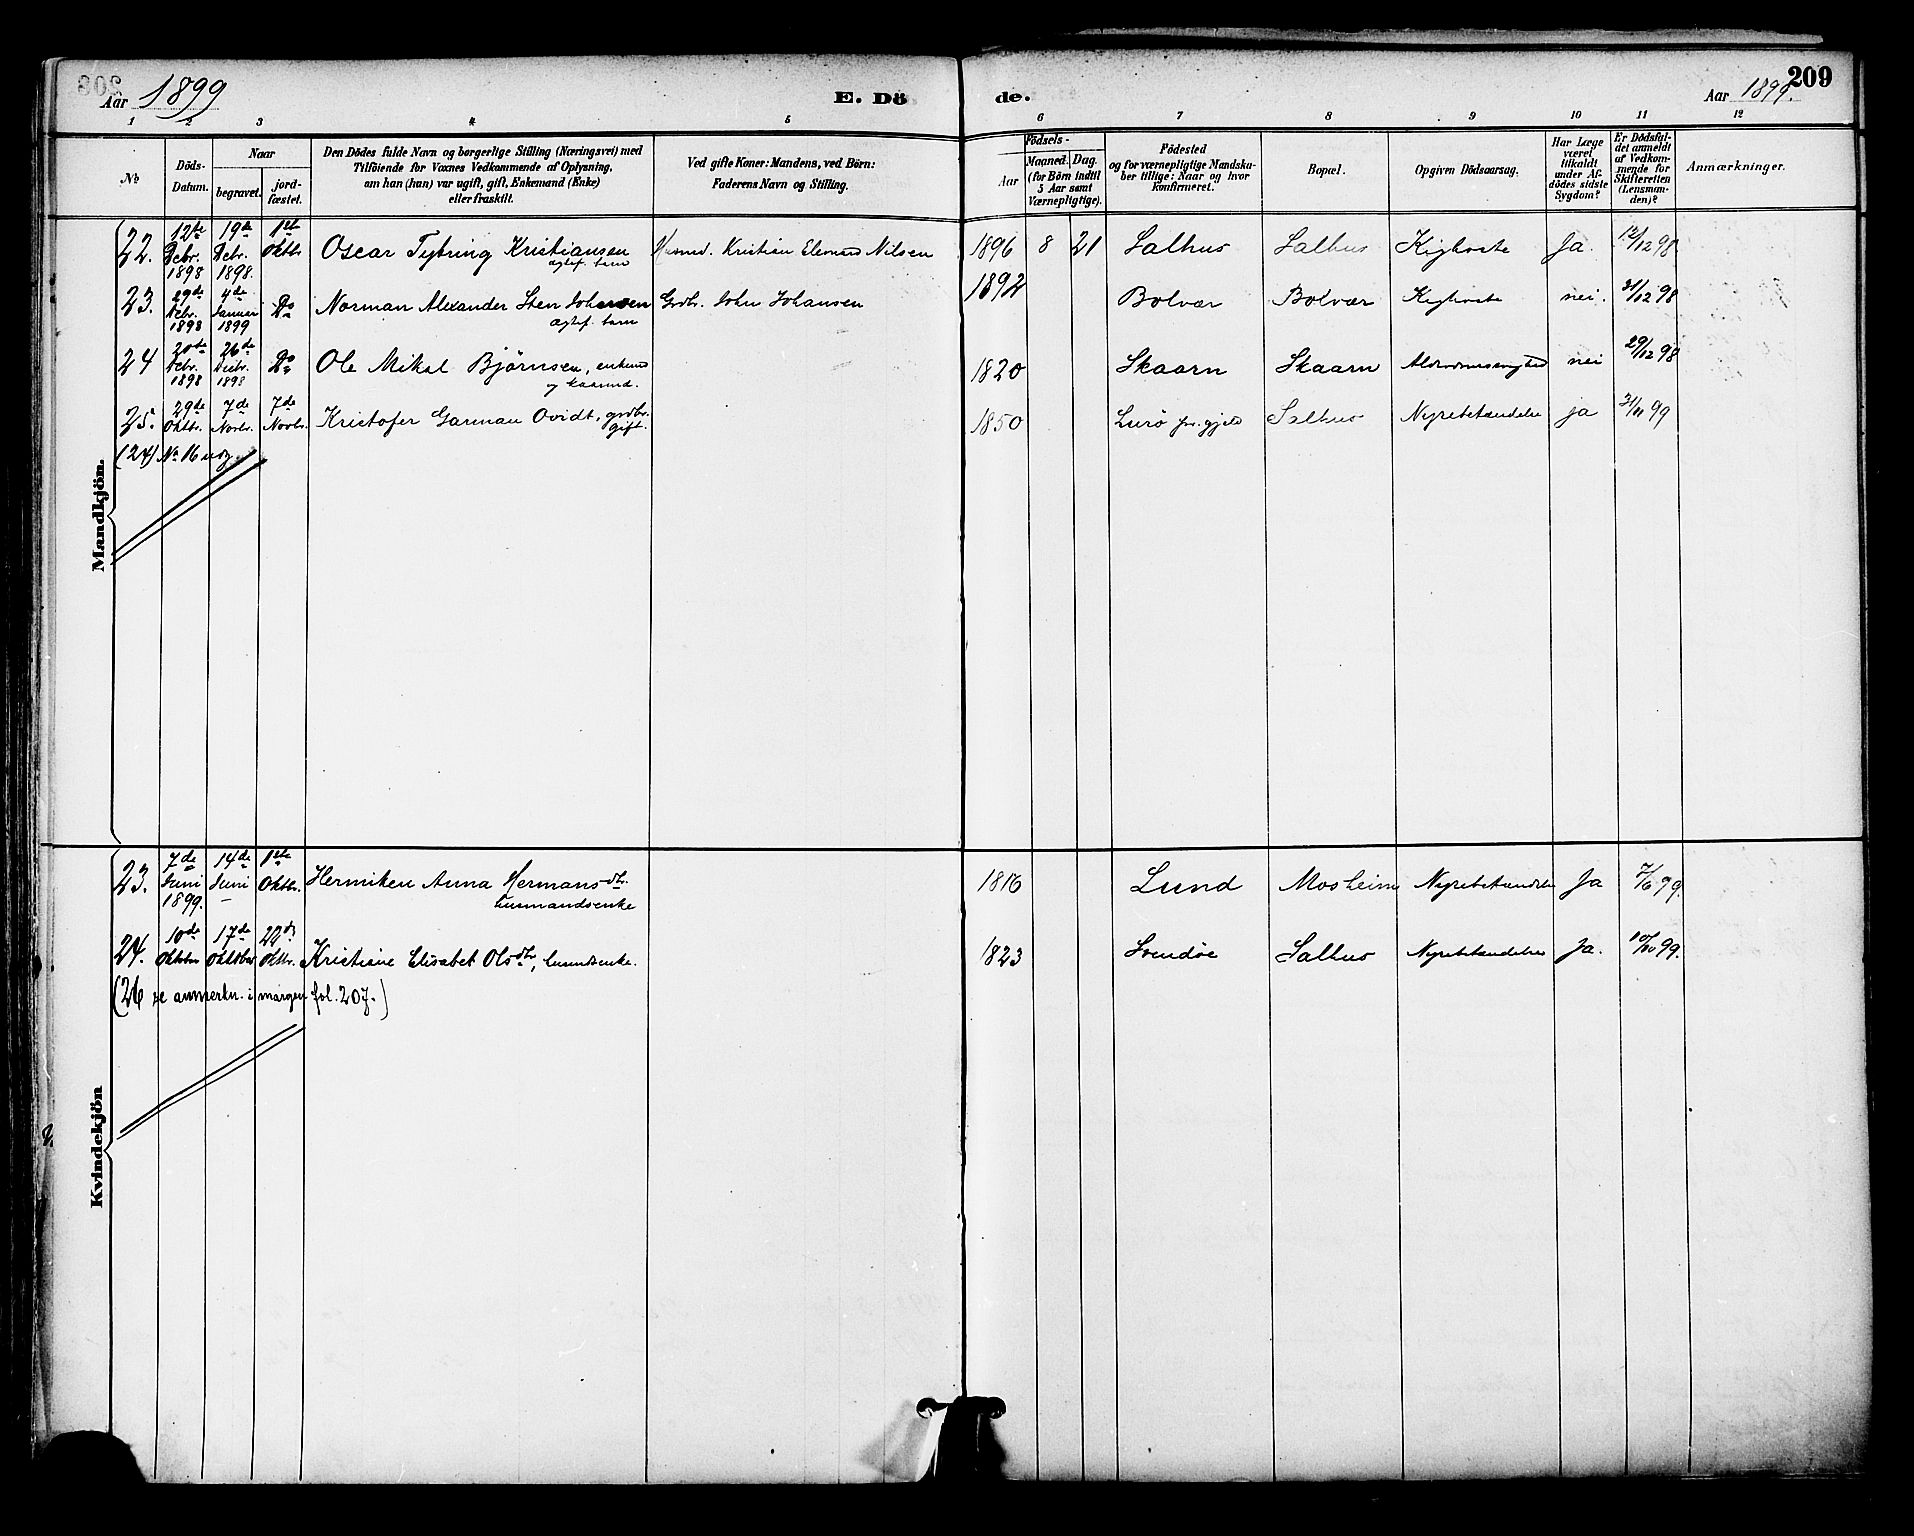 209
Aar 1899 E. Dö de. Aar 1899.
1 2 3 4 5 6 7 8 9 10 11 12
No. Döds-Datum. Naar begravet. jord-fæstet. Den Dödes fulde Navn og borgerlige Stilling (Næringsvei) med Tilföiende for Voxnes Vedkommende af Oplysning, om han (hun) var ugift, gift, Enkemand (Enke) eller fraskilt. Ved gifte Koner: Mandens, ved Börn: Faderens Navn og Stilling. Födsels- Aar Maaned. Dag. (for Börn indtil 5 Aar samt Værnepligtige). Födested og for værnepligtige Mandskaber tillige: Naar og hvor Konfirmeret. Bopæl. Opgiven Dödsaarsag. Har Læge været tilkaldt under Afdödes sidste Sygdom? Er Dödsfaldet anmeldt af Vedkommende for Skifteretten (Lensmanden)? Anmærkninger.
Mandkjön.
22. 12te Debr. 1898 19de Debr. 1898. 1ste Oktbr. Oscar Kristiansen ægtef. barn Husmd. Kristian Nilsen 1896 8 21 Salhus Salhus Kighoste Ja. 12/12 98
23. 29de Debr. 1898 4de Januar 1899 Do Norman Alexander Sten Johansen ægtef. barn Grdbr. John Johansen 1892 Bolvær Bolvær Kighoste nei. 31/12 98
24 20de Debr. 1898 26de Debr. 1898 Do Ole Mikal Bjørnsen, enkemd. og kaarmd. 1820 Skaarn Skaarn Alderdomssvaghed nei 29/12 98
25. 29de Oktbr. 7de Novbr. 7de Novbr. Kristofer Garman Ovidt, grdbr. gift. 1850 Lurö pr. gjeld Salhus Nyrebetændelse ja 31/11 99
(24) No 16 usg.
Kvindekjön
23. 7de Juni 1899. 14de Juni 1ste Oktbr. Hermiken Anna Hermansdtr. husmandsenke 1816 Lund Mosheim Nyrebetændelse Ja 7/6 99.
24. 10de Oktober 17de Oktober 22de Oktbr. Kristine Elisabet Olsdtr., husmdsenke. 1823 Svendöe Salhus Nyrebetændelse Ja. 10/10 99.
(26 se anmerkn. i margen fol. 207.)